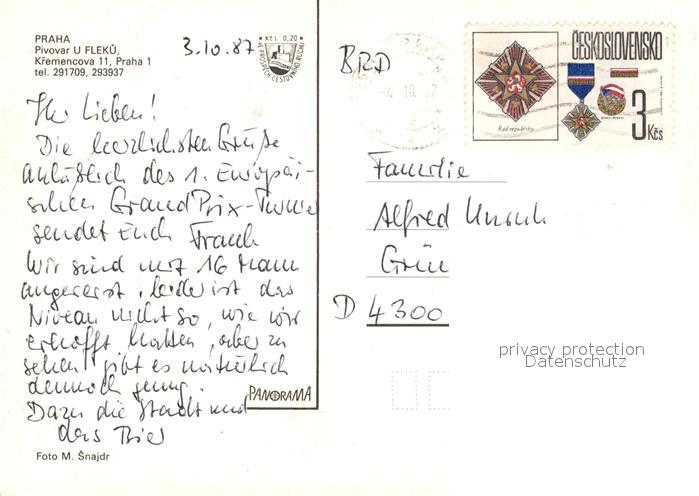 PRAHA
Pivovar U FLEKŮ,
Křemencova 11, Praha 1
tel. 291709, 293937
3.10.87
Kčs 0,20
VE PROSPĚCH CESTOVNÍHO RUCHU
Ihr Lieben!
Die herzlichsten Grüße
anläßlich des 1. Europäi-
schen Grand Prix-Turnier
sendet Euch Frank
Wir sind mit 16 Mann
angereist, leider ist das
Niveau nicht so, wie wir
erhofft hatten, aber zu
sehen gibt es natürlich
dennoch genug.
Dazu die Stadt und
das Bier
Foto M. Šnajdr
PANORAMA
BRD
4. 10.
ČESKOSLOVENSKO
Řád republiky
3 Kčs
Familie
Alfred Unruh
Grün
D 4300
privacy protection
Datenschutz